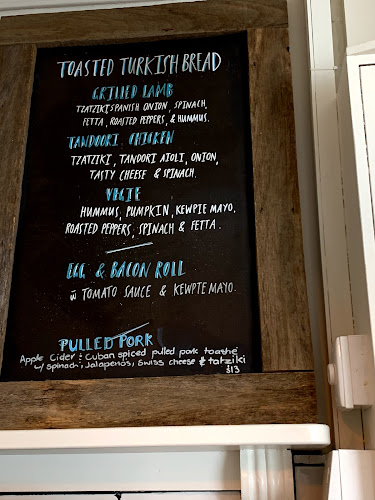 TOASTED TURKISH BREAD
GRILLED LAMB
TZATZIKI, SPANISH ONION, SPINACH,
FETTA, ROASTED PEPPERS, & HUMMUS.
TANDOORI CHICKEN
TZATZIKI, TANDORI AIOLI, ONION,
TASTY CHEESE & SPINACH.
VEGIE
HUMMUS, PUMPKIN, KEWPIE MAYO.
ROASTED PEPPERS, SPINACH & FETTA.
EGG & BACON ROLL
w TOMATO SAUCE & KEWPIE MAYO.
PULLED PORK
Apple Cider & Cuban spiced pulled pork toastie
w/ spinach, Jalapenos, Swiss cheese & tatziki
$13